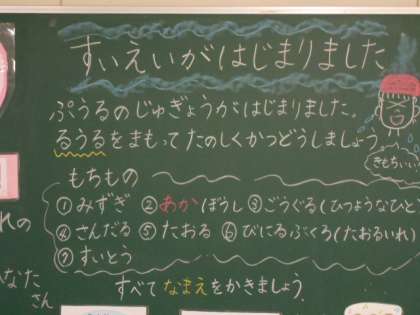 すいえいがはじまりました
ぷうるのじゅぎょうがはじまりました。
るうるをまもってたのしくかつどうしましょう。
きもちいい
もちもの
①みずぎ ②あかぼうし ③ごうぐる(ひつようなひと
④さんだる ⑤たおる ⑥びにるぶくろ(たおるいれ)
⑦すいとう
すべてなまえをかきましょう。
れの
なた
さん